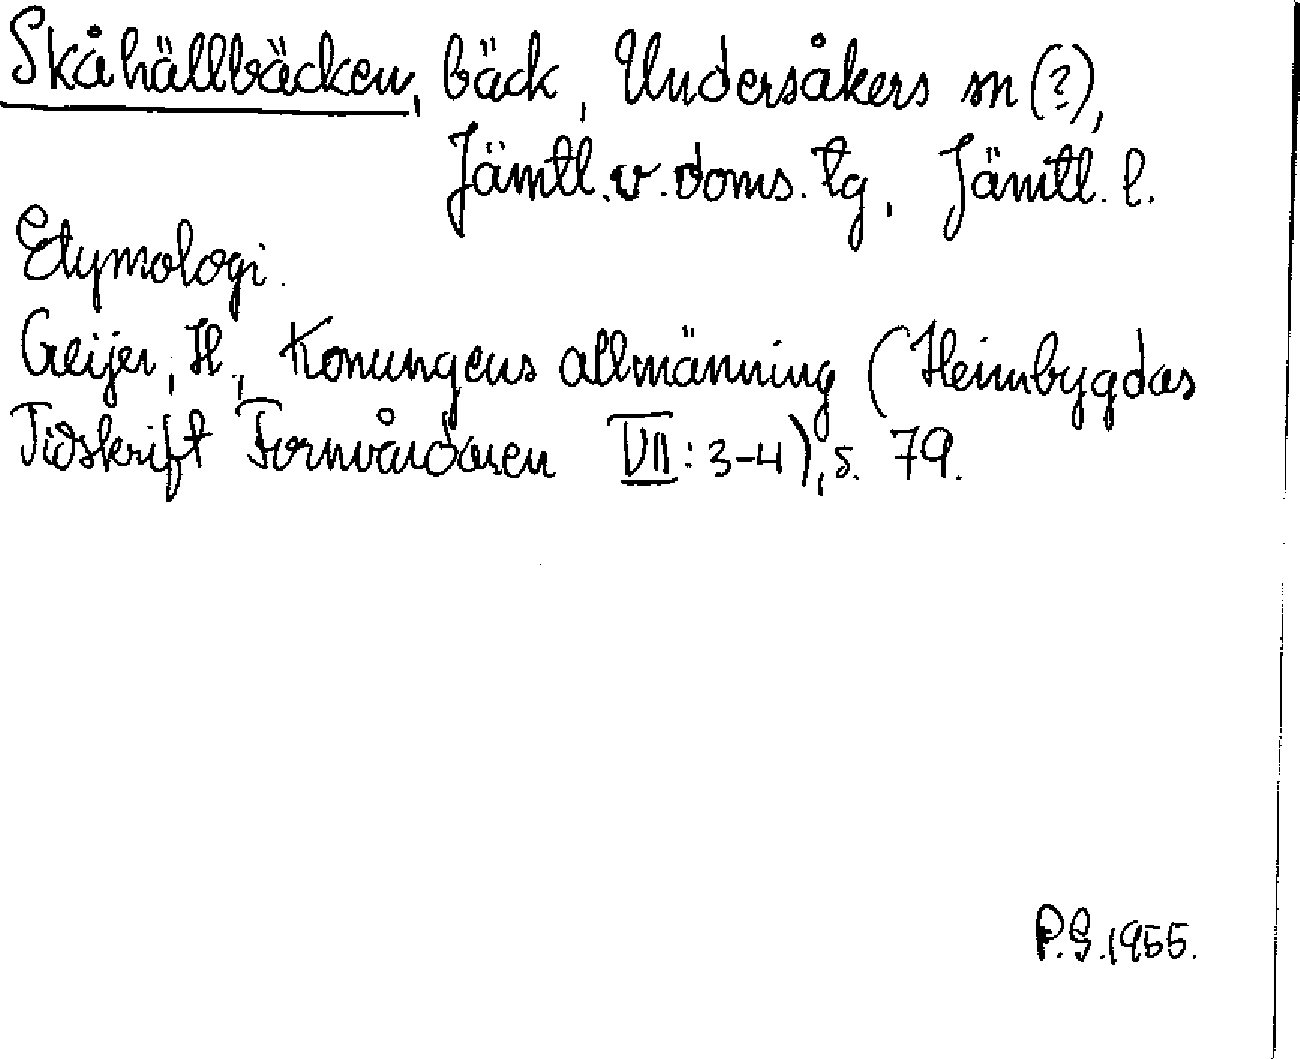 Skåhällbäcken, bäck, Undersåkers sn (?),
Jämtl. v. doms. tg, Jämtl. l.
Etymologi.
Geijer, H., Konungens allmänning (Heimbygdas
Tidskrift Fornvårdaren VII: 3-4), s. 79.
P.G. 1955.